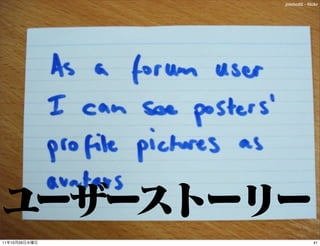 As a forum user
I can see posters'
profile pictures as
avatars
ユーザーストーリー
11年10月26日水曜日
41